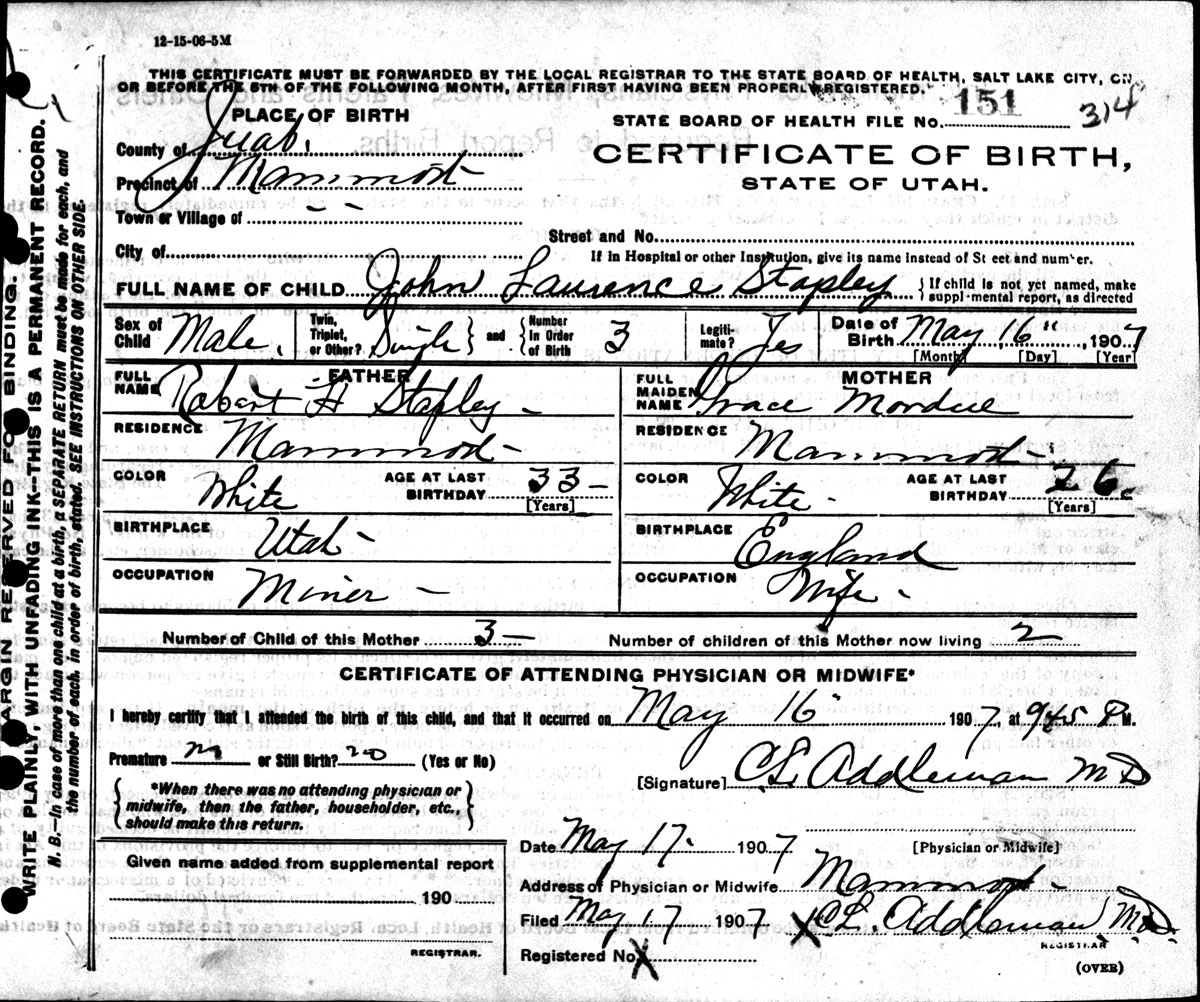 12-15-06-5M
THIS CERTIFICATE MUST BE FORWARDED BY THE LOCAL REGISTRAR TO THE STATE BOARD OF HEALTH, SALT LAKE CITY, ON
OR BEFORE THE 5TH OF THE FOLLOWING MONTH, AFTER FIRST HAVING BEEN PROPERLY REGISTERED.
PLACE OF BIRTH
STATE BOARD OF HEALTH FILE NO. 151 314
County of Juab.
CERTIFICATE OF BIRTH,
Precinct of Mammoth
STATE OF UTAH.
Town or Village of - -
Street and No.
City of
If in Hospital or other Institution, give its name instead of St eet and number.
FULL NAME OF CHILD John Laurence Stapley { If child is not yet named, make
suppl-mental report, as directed
Sex of Child Male. Twin, Triplet, or Other? Single } and { Number in Order of Birth 3 Legiti-mate? Yes Date of Birth May 16" 1907
[Month] [Day] [Year]
FATHER
FULL NAME Robert H Stapley -
MOTHER
FULL MAIDEN NAME Grace Mordue
RESIDENCE Mammoth -
RESIDENCE Mammoth -
COLOR White AGE AT LAST BIRTHDAY 33 - [Years]
COLOR White - AGE AT LAST BIRTHDAY 26 [Years]
BIRTHPLACE Utah -
BIRTHPLACE England
OCCUPATION Miner -
OCCUPATION Wife -
Number of Child of this Mother 3 - Number of children of this Mother now living 2
CERTIFICATE OF ATTENDING PHYSICIAN OR MIDWIFE*
I hereby certify that I attended the birth of this child, and that it occurred on May 16" 1907, at P M.
Premature or Still Birth? no (Yes or No)
[Signature] C.L. Addleman M D
{ *When there was no attending physician or
midwife, then the father, householder, etc.,
should make this return. }
Date May 17- 1907 [Physician or Midwife]
Given name added from supplemental report
190
Address of Physician or Midwife Mammoth
Filed May 17 1907 X C.L. Addleman M.D.
REGISTRAR
REGISTRAR.
Registered No. X
(OVER)
ARGIN RESERVED FOR BINDING.
WRITE PLAINLY, WITH UNFADING INK—THIS IS A PERMANENT RECORD.
N. B.—In case of more than one child at a birth, a SEPARATE RETURN must be made for each, and
the number of each, in order of birth, stated. SEE INSTRUCTIONS ON OTHER SIDE.